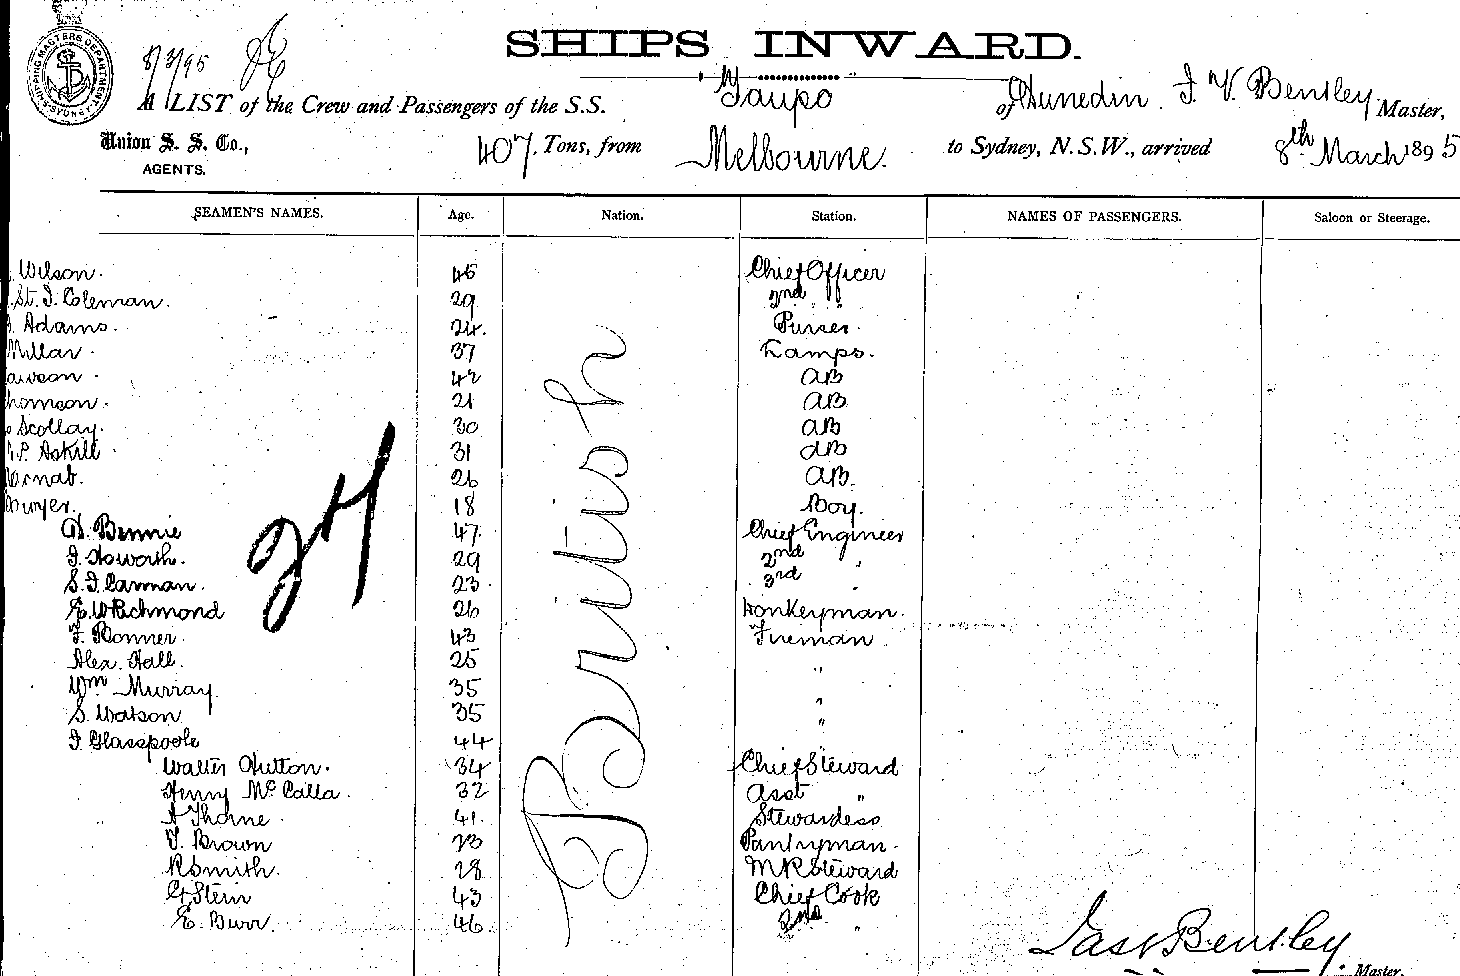 SHIPPING MASTERS DEPARTMENT SYDNEY
8/3/95
SHIPS INWARD.
A LIST of the Crew and Passengers of the S.S. Taupo of Dunedin. J. V. Bentley Master,
Union S. S. Co., AGENTS. 407 Tons, from Melbourne. to Sydney, N.S.W., arrived 8th March 1895
SEAMEN'S NAMES. Age. Nation. Station. NAMES OF PASSENGERS. Saloon or Steerage.
Wilson. 45 Chief Officer
St. J. Coleman. 29 2nd "
Adams. 24. Purser.
Millar. 37 Lamps.
awson 42 AB
homson. 21 AB
Scollay. 30 AB
P. Askill 31 AB
26 AB.
18 Boy.
Bennie 47. Chief Engineer
29 2nd "
S. J. Carman. 23 3rd "
E. W Richmond 26 Donkeyman.
F. Bonner. 43 Fireman
Alex. Hall. 25 "
Wm Murray 35 "
S. Watson 35 "
J. Glasspoole 44
Walter Hutton. 34 Chief Steward
Henry McCalla. 32 Asst "
A Thorne. 41. Stewardess
T. Brown 23 Pantryman.
R Smith. 28 M R Steward
G Stein 43 Chief Cook
E. Burr. 46 2nd "
British
24
Jas V Bentley
Master.